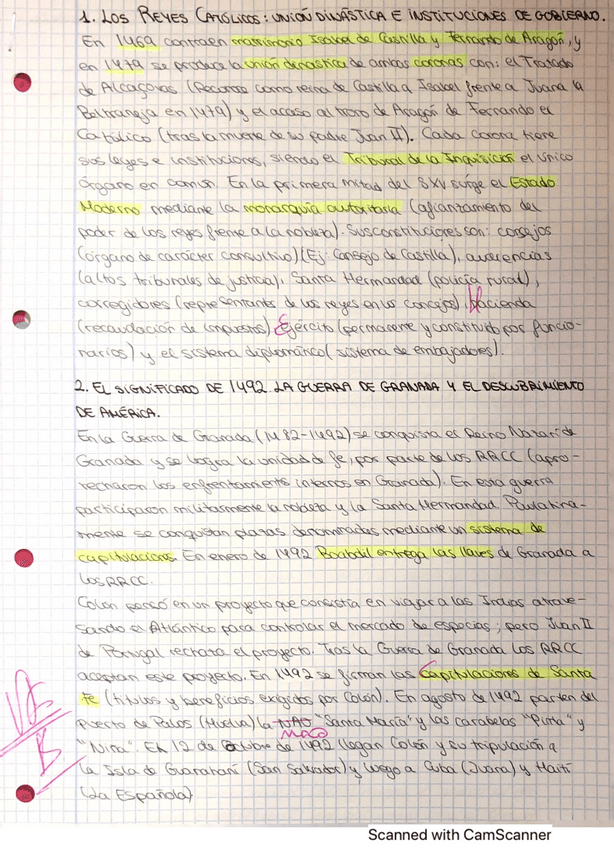 1. LOS REYES CATÓLICOS: UNIÓN DINÁSTICA E INSTITUCIONES DE GOBIERNO.
En 1469 contraen matrimonio Isabel de Castilla y Fernando de Aragón, y
en 1479 se produce la unión dinástica de ambas coronas con: el Tratado
de Alcaçovas (Reconoce como reina de Castilla a Isabel frente a Juana la
Beltraneja en 1479) y el acceso al trono de Aragón de Fernando el
Católico (tras la muerte de su padre Juan II). Cada corona tiene
sus leyes e instituciones, siendo el Tribunal de la Inquisición el único
órgano en común. En la primera mitad del SXV surge el Estado
Moderno mediante la monarquía autoritaria (afianzamiento del
poder de los reyes frente a la nobleza). Sus constituciones son: consejos
(órgano de carácter consultivo) (Ej: Consejo de Castilla), audiencias
(altos tribunales de justicia), Santa Hermandad (policía rural),
corregidores (representantes de los reyes en los concejos), Hacienda
(recaudación de impuestos) Ejército (permanente y constituido por funcio-
narios) y el sistema diplomático (sistema de embajadores).
2. EL SIGNIFICADO DE 1492. LA GUERRA DE GRANADA Y EL DESCUBRIMIENTO
DE AMÉRICA.
En la Guerra de Granada (1482-1492) se conquista el Reino Nazarí de
Granada y se logra la unidad de fe, por parte de los RRCC (apro-
vecharon los enfrentamientos internos en Granada). En esta guerra
participaron militarmente la nobleza y la Santa Hermandad. Paulatina-
mente se conquistan plazas denominadas mediante un sistema de
capitulacions. En enero de 1492 Boabdil entrega las llaves de Granada a
los RRCC.
Colón pensó en un proyecto que consistía en viajar a las Indias atrave-
sando el Atlántico para controlar el mercado de especias; pero Juan II
de Portugal rechaza el proyecto. Tras la Guerra de Granada los RRCC
aceptan este proyecto. En 1492 se firman las Capitulaciones de Santa
Fe (títulos y beneficios exigidos por Colón). En agosto de 1492 parten del
Puerto de Palos (Huelva) la NAO "Santa María" y las carabelas "Pinta" y
"Nina". En 12 de Octubre de 1492 llegan Colón y su tripulación a
la Isla de Guanahaní (San Salvador) y luego a Cuba (Juana) y Haití
(La Española)
B
Scanned with CamScanner